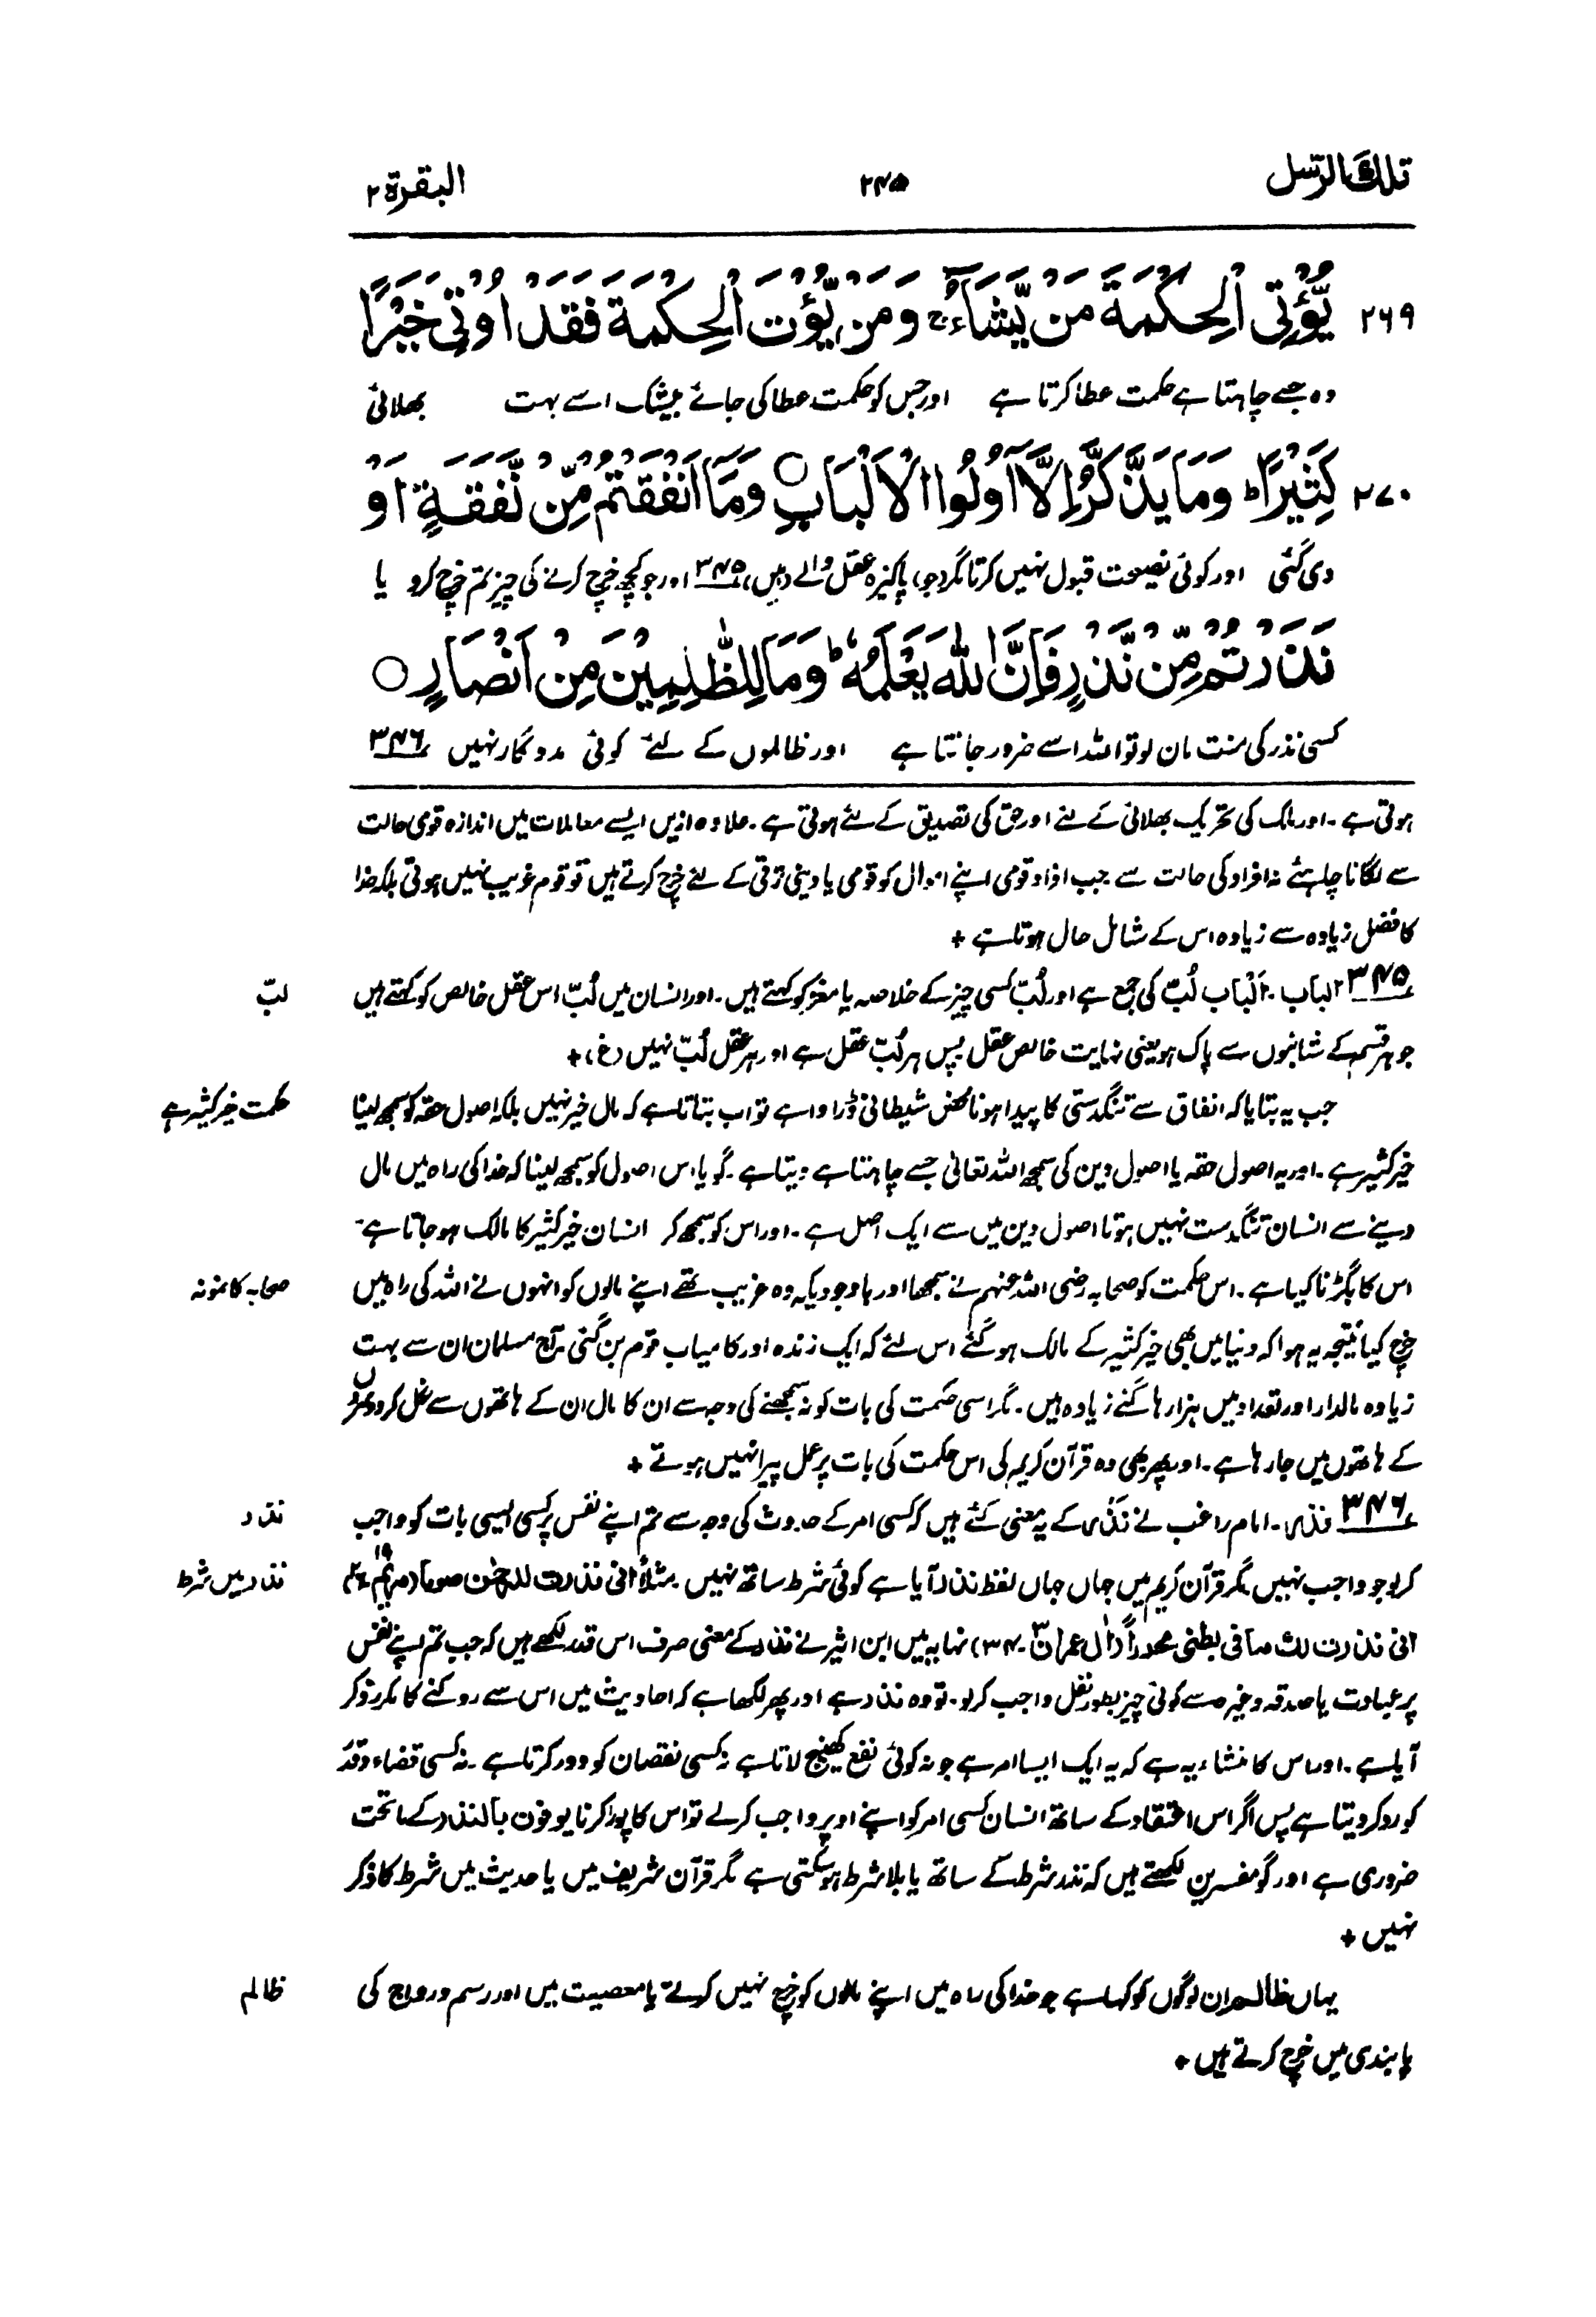 تلك الرسل ۲۴۵ البقرة ۲
۲۶۹ يُّؤْتِي الْحِكْمَةَ مَنْ يَّشَآءُ ۚ وَمَنْ يُّؤْتَ الْحِكْمَةَ فَقَدْ اُوْتِيَ خَيْرًا
وہ جسے چاہتا ہے حکمت عطا کرتا ہے اور جس کو حکمت عطا کی جائے بیشک اسے بہت بھلائی
۲۷۰ كَثِيْرًا ؕ وَمَا يَذَّكَّرُ اِلَّآ اُولُوا الْاَلْبَابِ ○ وَمَآ اَنْفَقْتُمْ مِّنْ نَّفَقَةٍ اَوْ
دی گئی اور کوئی نصیحت قبول نہیں کرتا مگر (جو) پاکیزہ عقل والے (ہیں) ۳۴۵ اور جو کچھ خرچ کرنے کی چیز تم خرچ کرو یا
نَذَرْتُمْ مِّنْ نَّذْرٍ فَاِنَّ اللّٰهَ يَعْلَمُهٗ ؕ وَمَا لِلظّٰلِمِيْنَ مِنْ اَنْصَارٍ ○
کسی نذر کی منت مان لو تو اللہ اسے ضرور جانتا ہے اور ظالموں کے لئے کوئی مددگار نہیں ۳۴۶
ہوتی ہے۔ اور ملک کی تحریک بھلائی کے لئے اور حق کی تصدیق کے لئے ہوتی ہے۔ علاوہ ازیں ایسے معاملات میں اندازہ قومی حالت
سے لگانا چاہئے نہ افراد کی حالت سے جب افراد قومی اپنے اموال کو قومی یا دینی ترقی کے لئے خرچ کرتے ہیں تو قوم غریب نہیں ہوتی بلکہ خدا
کا فضل زیادہ سے زیادہ اس کے شامل حال ہوتا ہے +
۳۴۵ الباب۔ اَلْبَاب لُبّ کی جمع ہے اور لُبّ کسی چیز کے خلاصہ یا مغز کو کہتے ہیں۔ اور انسان میں لُبّ اس عقل خالص کو کہتے ہیں
لبّ
جو ہر قسم کے شائبوں سے پاک ہو یعنی نہایت خالص عقل پس ہر لُبّ عقل ہے اور ہر عقل لُبّ نہیں (غ) +
جب یہ بتایا کہ انفاق سے تنگدستی کا پیدا ہونا محض شیطانی ڈراوا ہے تو اب بتاتا ہے کہ مال خیر نہیں بلکہ اصول حقہ کو سمجھ لینا
حکمت خیر کثیر ہے
خیر کثیر ہے۔ اور یہ اصول حقہ یا اصول دین کی سمجھ اللہ تعالیٰ جسے چاہتا ہے دیتا ہے۔ گویا اس اصول کو سمجھ لینا کہ خدا کی راہ میں مال
دینے سے انسان تنگدست نہیں ہوتا اصول دین میں سے ایک اصل ہے۔ اور اس کو سمجھ کر انسان خیر کثیر کا مالک ہو جاتا ہے۔
اس کا بگڑنا کیا ہے۔ اس حکمت کو صحابہ رضی اللہ عنہم نے سمجھا اور باوجودیکہ وہ غریب تھے اپنے مالوں کو انہوں نے اللہ کی راہ میں
صحابہ کا نمونہ
خرچ کیا نتیجہ یہ ہوا کہ دنیا میں بھی خیر کثیر کے مالک ہو گئے اس لئے کہ ایک زندہ اور کامیاب قوم بن گئی۔ آج مسلمان ان سے بہت
زیادہ مالدار اور تعداد میں ہزارہا گنے زیادہ ہیں۔ مگر اسی حکمت کی بات کو نہ سمجھنے کی وجہ سے ان کا مال ان کے ہاتھوں سے نکل کر دوسروں
کے ہاتھوں میں جا رہا ہے۔ اور پھر بھی وہ قرآن کریم کی اس حکمت کی بات پر عمل پیرا نہیں ہوتے +
۳۴۶ نذر۔ امام راغب نے نَذْر کے یہ معنی کئے ہیں کہ کسی امر کے حدوث کی وجہ سے تم اپنے نفس پر کسی ایسی بات کو واجب
نذر
کر لو جو واجب نہیں مگر قرآن کریم میں جہاں جہاں لفظ نذر آیا ہے کوئی شرط ساتھ نہیں۔ مثلاً انی نذرت للرحمٰن صوماً (مریم ۱۹۔ ۲۶)
نذر میں شرط
انی نذرت لك ما فی بطنی محرراً (اٰل عمران ۳۔ ۳۴) نہایہ میں ابن اثیر نے نذر کے معنی صرف اس قدر لکھے ہیں کہ جب تم اپنے نفس
پر عبادت یا صدقہ وغیرہ سے کوئی چیز بطور نفل واجب کر لو۔ تو وہ نذر ہے اور پھر لکھا ہے کہ احادیث میں اس سے روکنے کا مکرر ذکر
آیا ہے۔ اور اس کا منشاء یہ ہے کہ یہ ایک ایسا امر ہے جو نہ کوئی نفع کھینچ لاتا ہے نہ کسی نقصان کو دور کرتا ہے۔ نہ کسی قضاء و قدر
کو رد کر دیتا ہے پس اگر اس اعتقاد کے ساتھ انسان کسی امر کو اپنے اوپر واجب کر لے تو اس کا پورا کرنا یوفون بالنذر کے ماتحت
ضروری ہے اور گو مفسرین لکھتے ہیں کہ نذر شرط کے ساتھ یا بلا شرط ہو سکتی ہے مگر قرآن شریف میں یا حدیث میں شرط کا ذکر
نہیں +
یہاں ظالم ان لوگوں کو کہا ہے جو خدا کی راہ میں اپنے مالوں کو خرچ نہیں کرتے یا معصیت میں اور رسم و رواج کی
ظالم
پابندی میں خرچ کرتے ہیں +